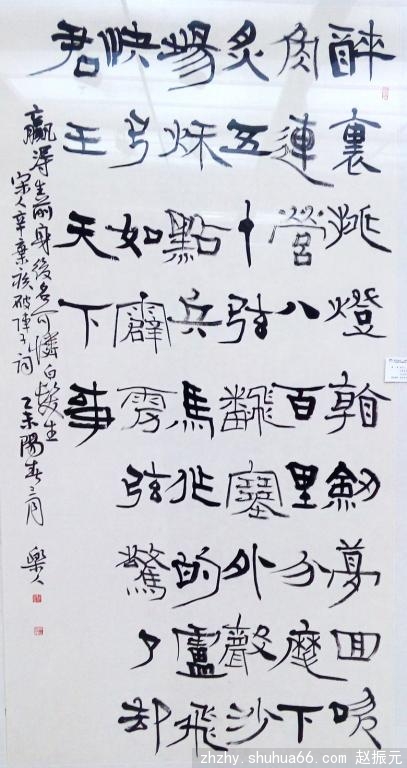 醉裏挑燈看劍夢回吹
角連營八百里分麾下
炙五十弦飜塞外聲沙
場秋點兵馬作的盧飛
快弓如霹靂弦驚了却
君王天下事
贏得生前身後名可憐白髮生
宋人辛棄疾破陣子詞 乙未陽春三月 樂人
zhzhy.shuhua66.com 赵振元